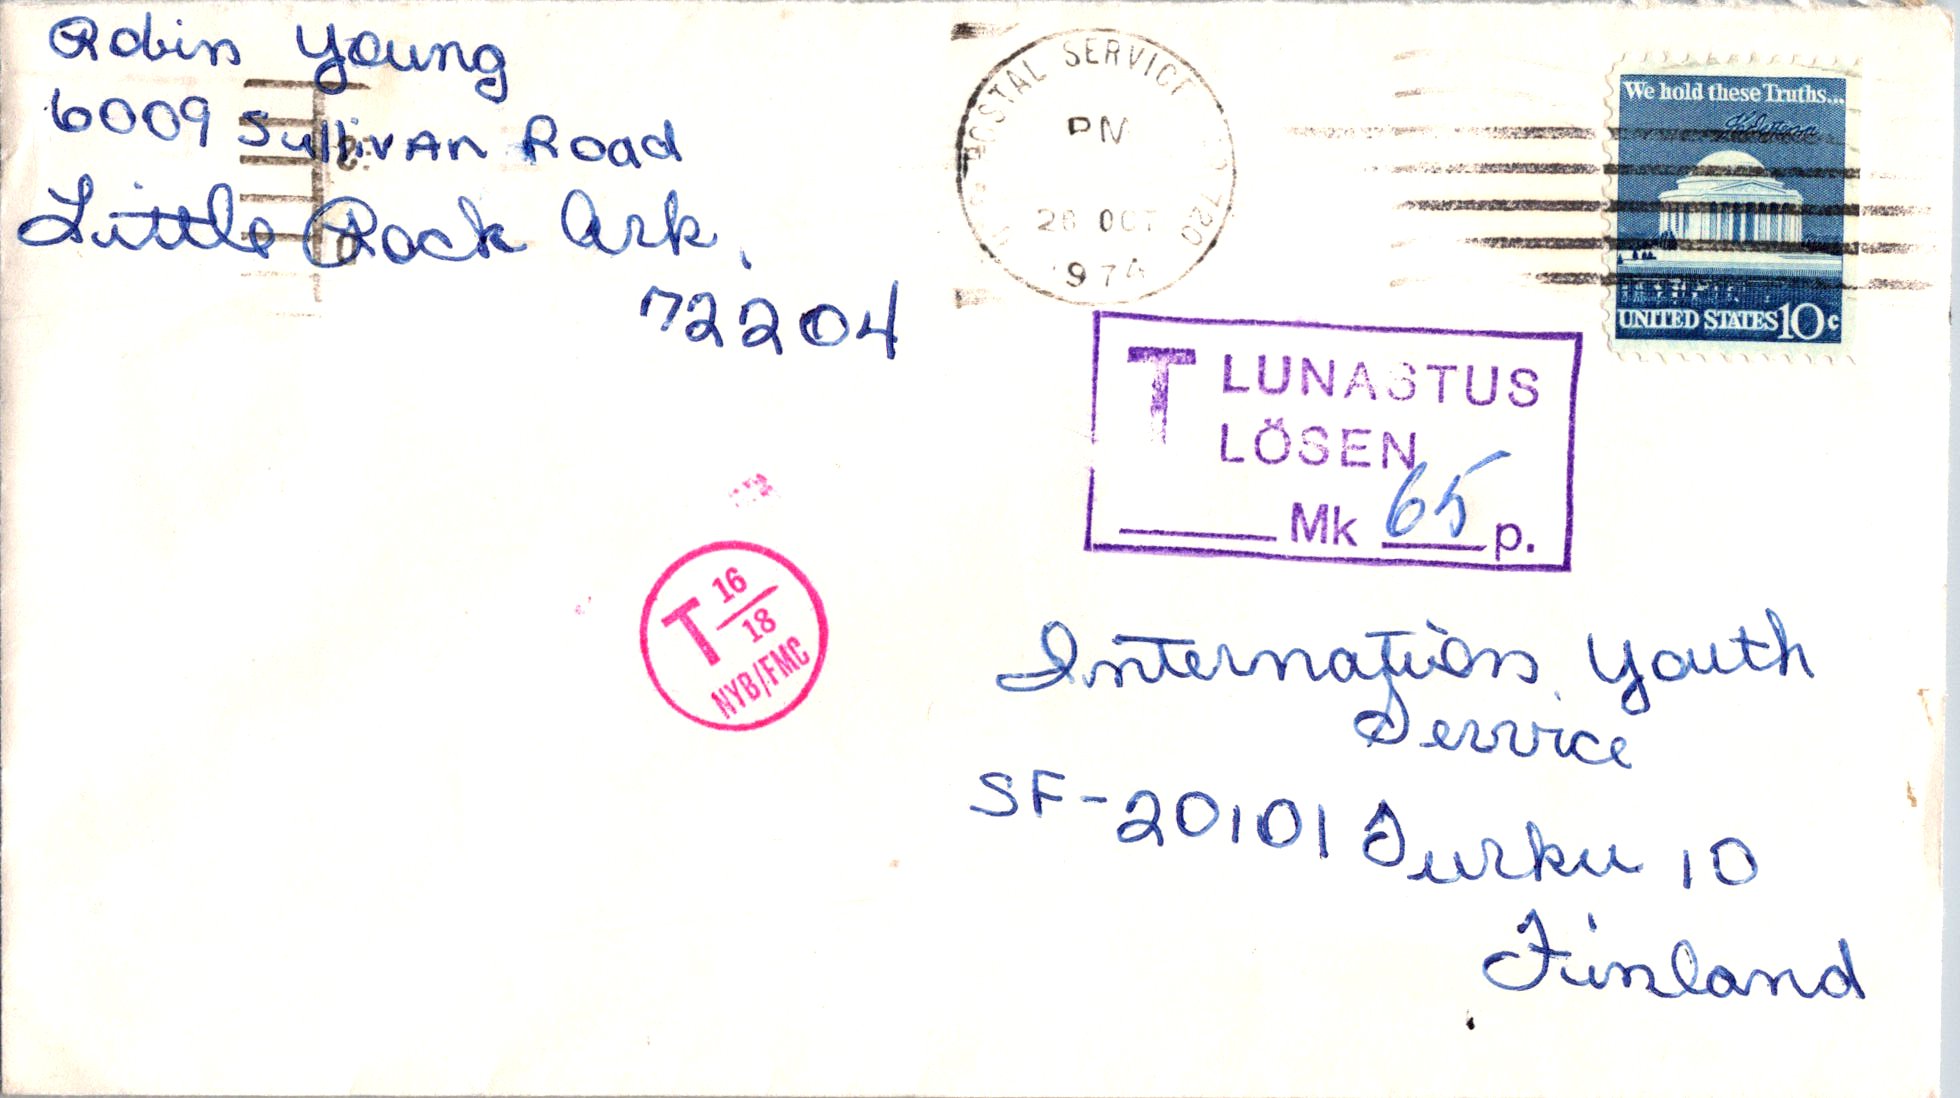 Robin Young
6009 Sullivan Road
Little Rock Ark.
72204
POSTAL SERVICE
720
PM
26 OCT
1974
We hold these Truths...
UNITED STATES 10c
T LUNASTUS
LÖSEN
Mk 65 p.
T 16
18
NYB/FMC
Internation Youth
Service
SF-20101 Turku 10
Finland